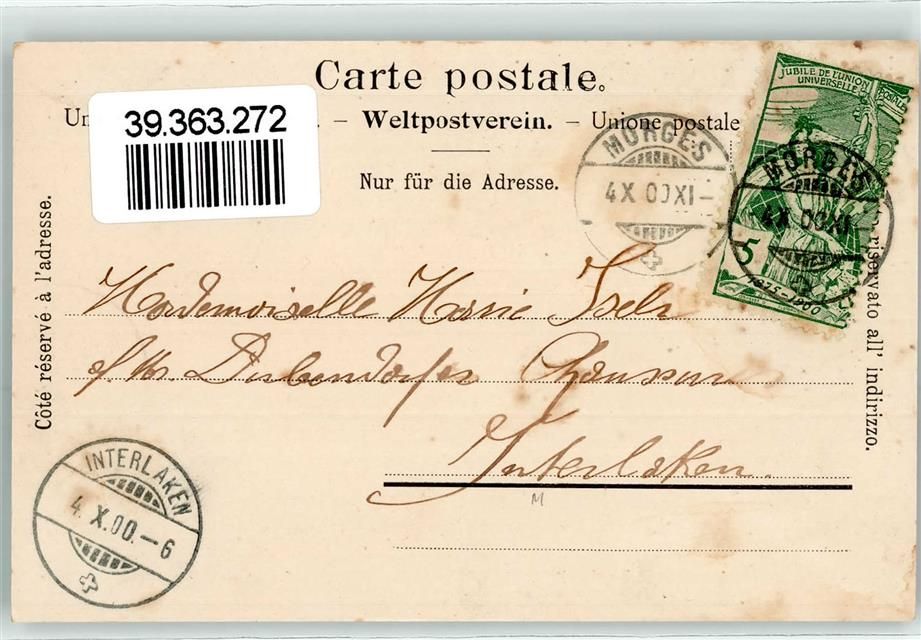 Carte postale.
39.363.272
Un – Weltpostverein. – Unione postale
Nur für die Adresse.
Côté réservé à l'adresse.
riservato all' indirizzo.
JUBILÉ DE L'UNION
UNIVERSELLE
POSTALE
5
1875–1900
MORGES
4 X 00 XI –
MORGES
4 X 00 XI –
Mademoiselle Marie Iseli
Interlaken.
M
INTERLAKEN
4. X. 00. – 6